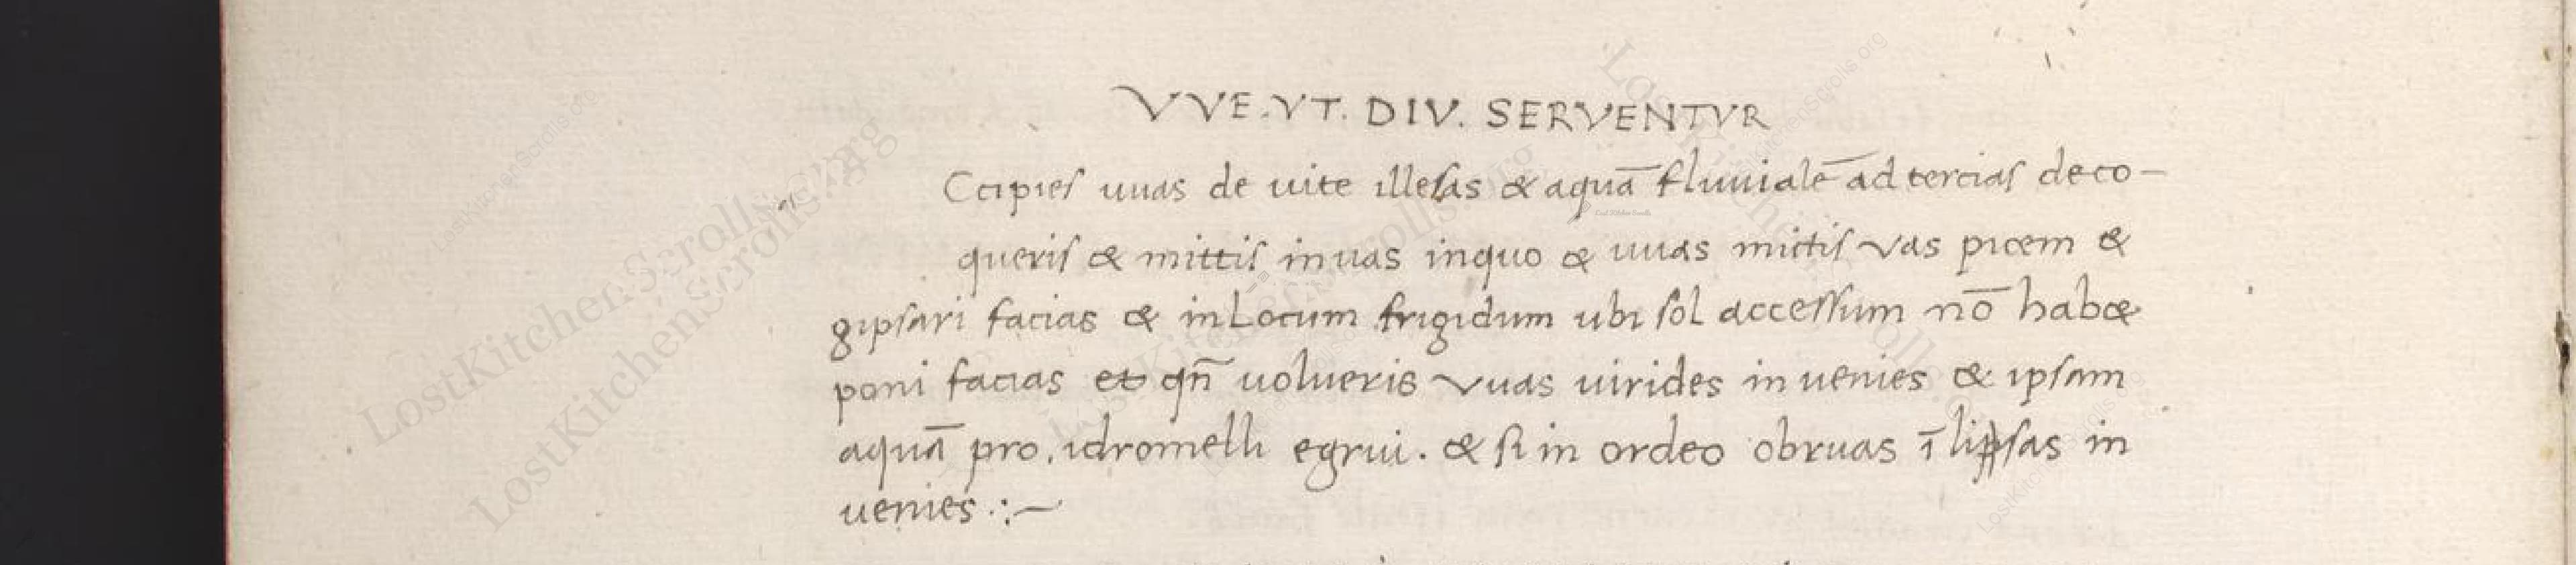 VVE.VT.DIV.SERVENTVR
Ccipies uuas de uite illesas & aquā fluuialē ad tercias deco-
queris & mittis inuas inquo & uuas mictis vas picem &
gipsari facias & inLocum frigidum ubi sol accessum nō hab&
poni facias et qn̄ uolueris vuas uirides in uenies & ipsam
aquā pro.idromelli egrui. & si in ordeo obruas ī lipsas in
uenies :-